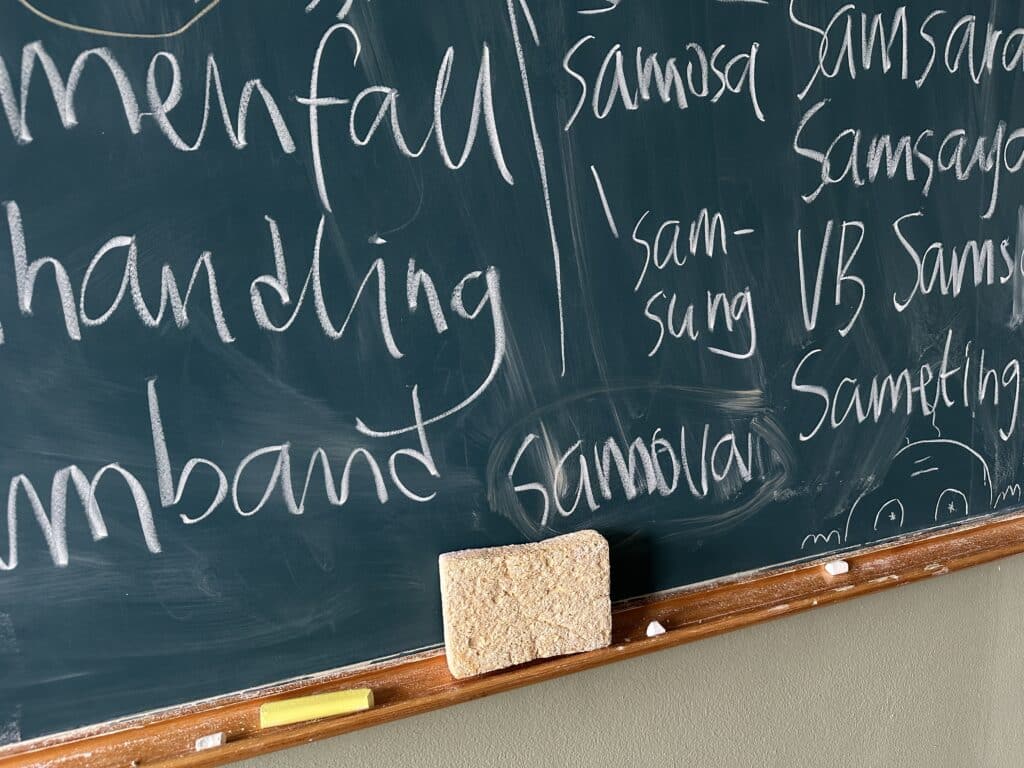 menfall
handling
mband
samosa
sam-
sung
samovar
Samsara
Samsaya
VB Sams
Sameting